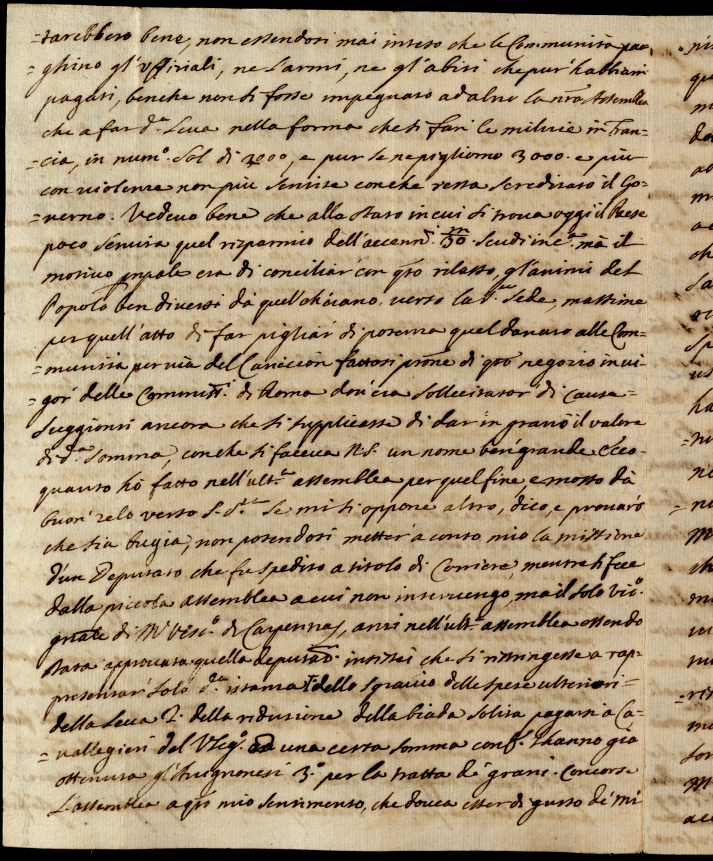 =tarebbero bene, non essendosi mai inteso che le Communità pa=
=ghino gl'uffiziali, ne l'armi, ne gl'abiti che pur' habbiam
pagati, benche non si fosse impegnata ad altro la nr̃a Assemblea
che a far d.ª Leva nella forma che si fan' le milizie in Fran=
=cia, in num.º sol di 2000, e pur se ne pigliorno 3000. e più
con violenze non più sentite con che resta screditato il Go=
=verno. Vedevo bene che allo stato in cui si trova oggi il Paese
poco serviva quel rizparmio dell'accenn.ti 30.m scudi in c.ª mà il
motivo pñpale era di conciliar' con q̃to rilasso, gl'animi del
Popolo ben diversi dà quel ch'erano verso la S.ta Sede, massime
per quell'atto di far pigliar di potenza quel danaro alle Com=
=munità per via del fattosi pñe di q̃to negozio in vi=
gor' delle Committ.i di Roma dov'era sollecitator di cause
suggionsi ancora che si supplicasse di dar in grano il valore
di d.ª somma, con che si faceva N.S. un nome ben grande. Ecco
quanto hò fatto nell'ult.ª assemblea per quel fine, e mosso dà
buon' zelo verso S. S.tà Se mi si oppone altro, dico, e provarò
che sia bugia, non potendosi metter' a conto mio la missione
d'un Deputato che fu spedito a titolo di Corriere, mentre si fece
dalla piccola assemblea a cui non intervengo, ma il solo vic.º
gñale di M.r Vesc.º di Carpentras, anzi nell'ult.ª assemblea essendo
stata approvata quella deputaz̃. insistei che si ristringesse a rap=
presentar' solo d.ª istanza 1.º dello sgravio delle spese ulteriori=
della Leva 2.º della riduzione della biada solita pagarsi a Ca=
=vallegieri del Vleg.º ad una certa somma conf.e l'hanno già
ottenuta gl'Avignonesi 3.º per la tratta de' grani. Concorse
l'assemblea a q̃to mio sentimento, che dovea esser di gusto de' Mi